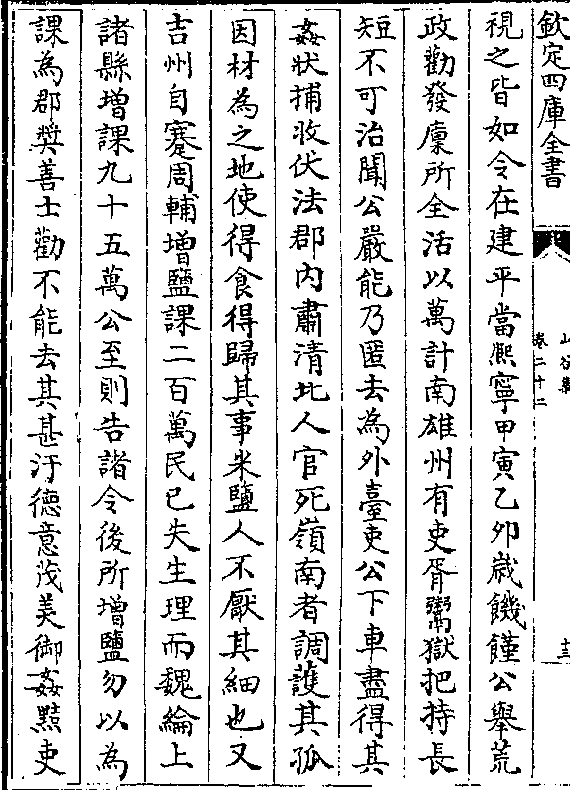 欽定四庫全書
山谷集
卷二十二
十三
視之皆如令在建平當熈寧甲寅乙夘嵗饑饉公舉荒
政勸發廪所全活以萬計南雄州有吏胥鬻獄把持長
短不可治聞公嚴能乃匿去為外臺吏公下車盡得其
姦狀捕收伏法郡内肅清北人官死嶺南者調護其孤
因材為之地使得食得歸其事米鹽人不厭其細也又
吉州自蹇周輔增鹽課二百萬民已失生理而魏綸上
諸縣增課九十五萬公至則告諸令後所增鹽勿以為
課為郡奬善士勸不能去其甚汙徳意茂美御姦黠吏